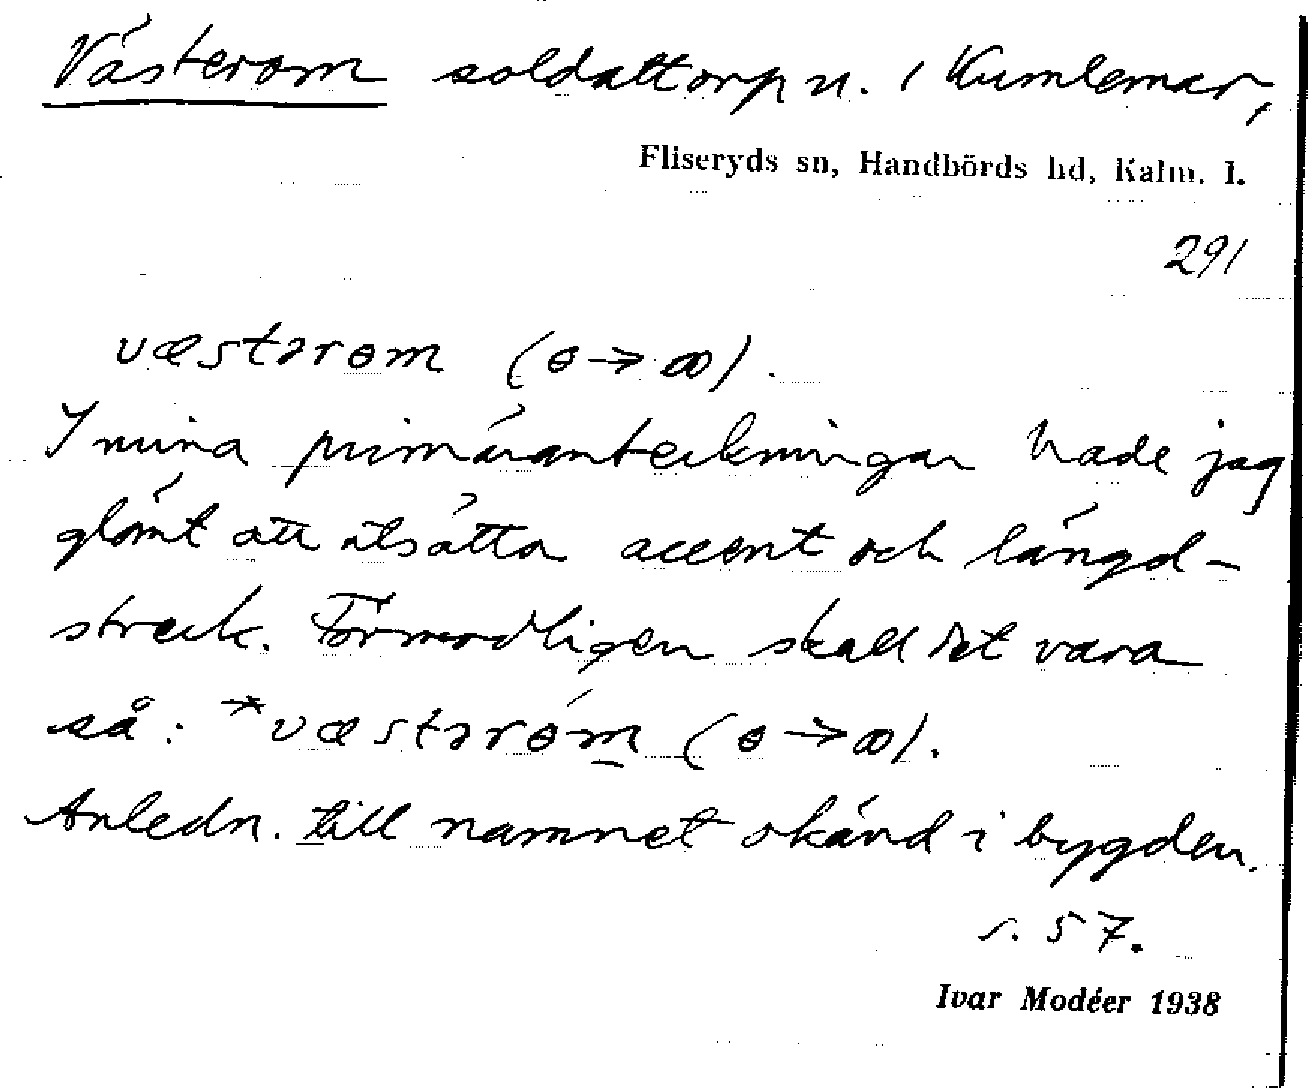 Västerom soldattorp n. i Kumlemar,
Fliseryds sn, Handbörds hd, Kalm. l.
291
væstərɵm (ɵ→ꝏ).
I mina primäranteckningar hade jag
glömt att utsätta accent och längd-
streck. Förmodligen skall det vara
så: *væstərɵ́m̲ (ɵ→ꝏ).
Anledn. till namnet okänd i bygden.
s. 57.
Ivar Modéer 1938